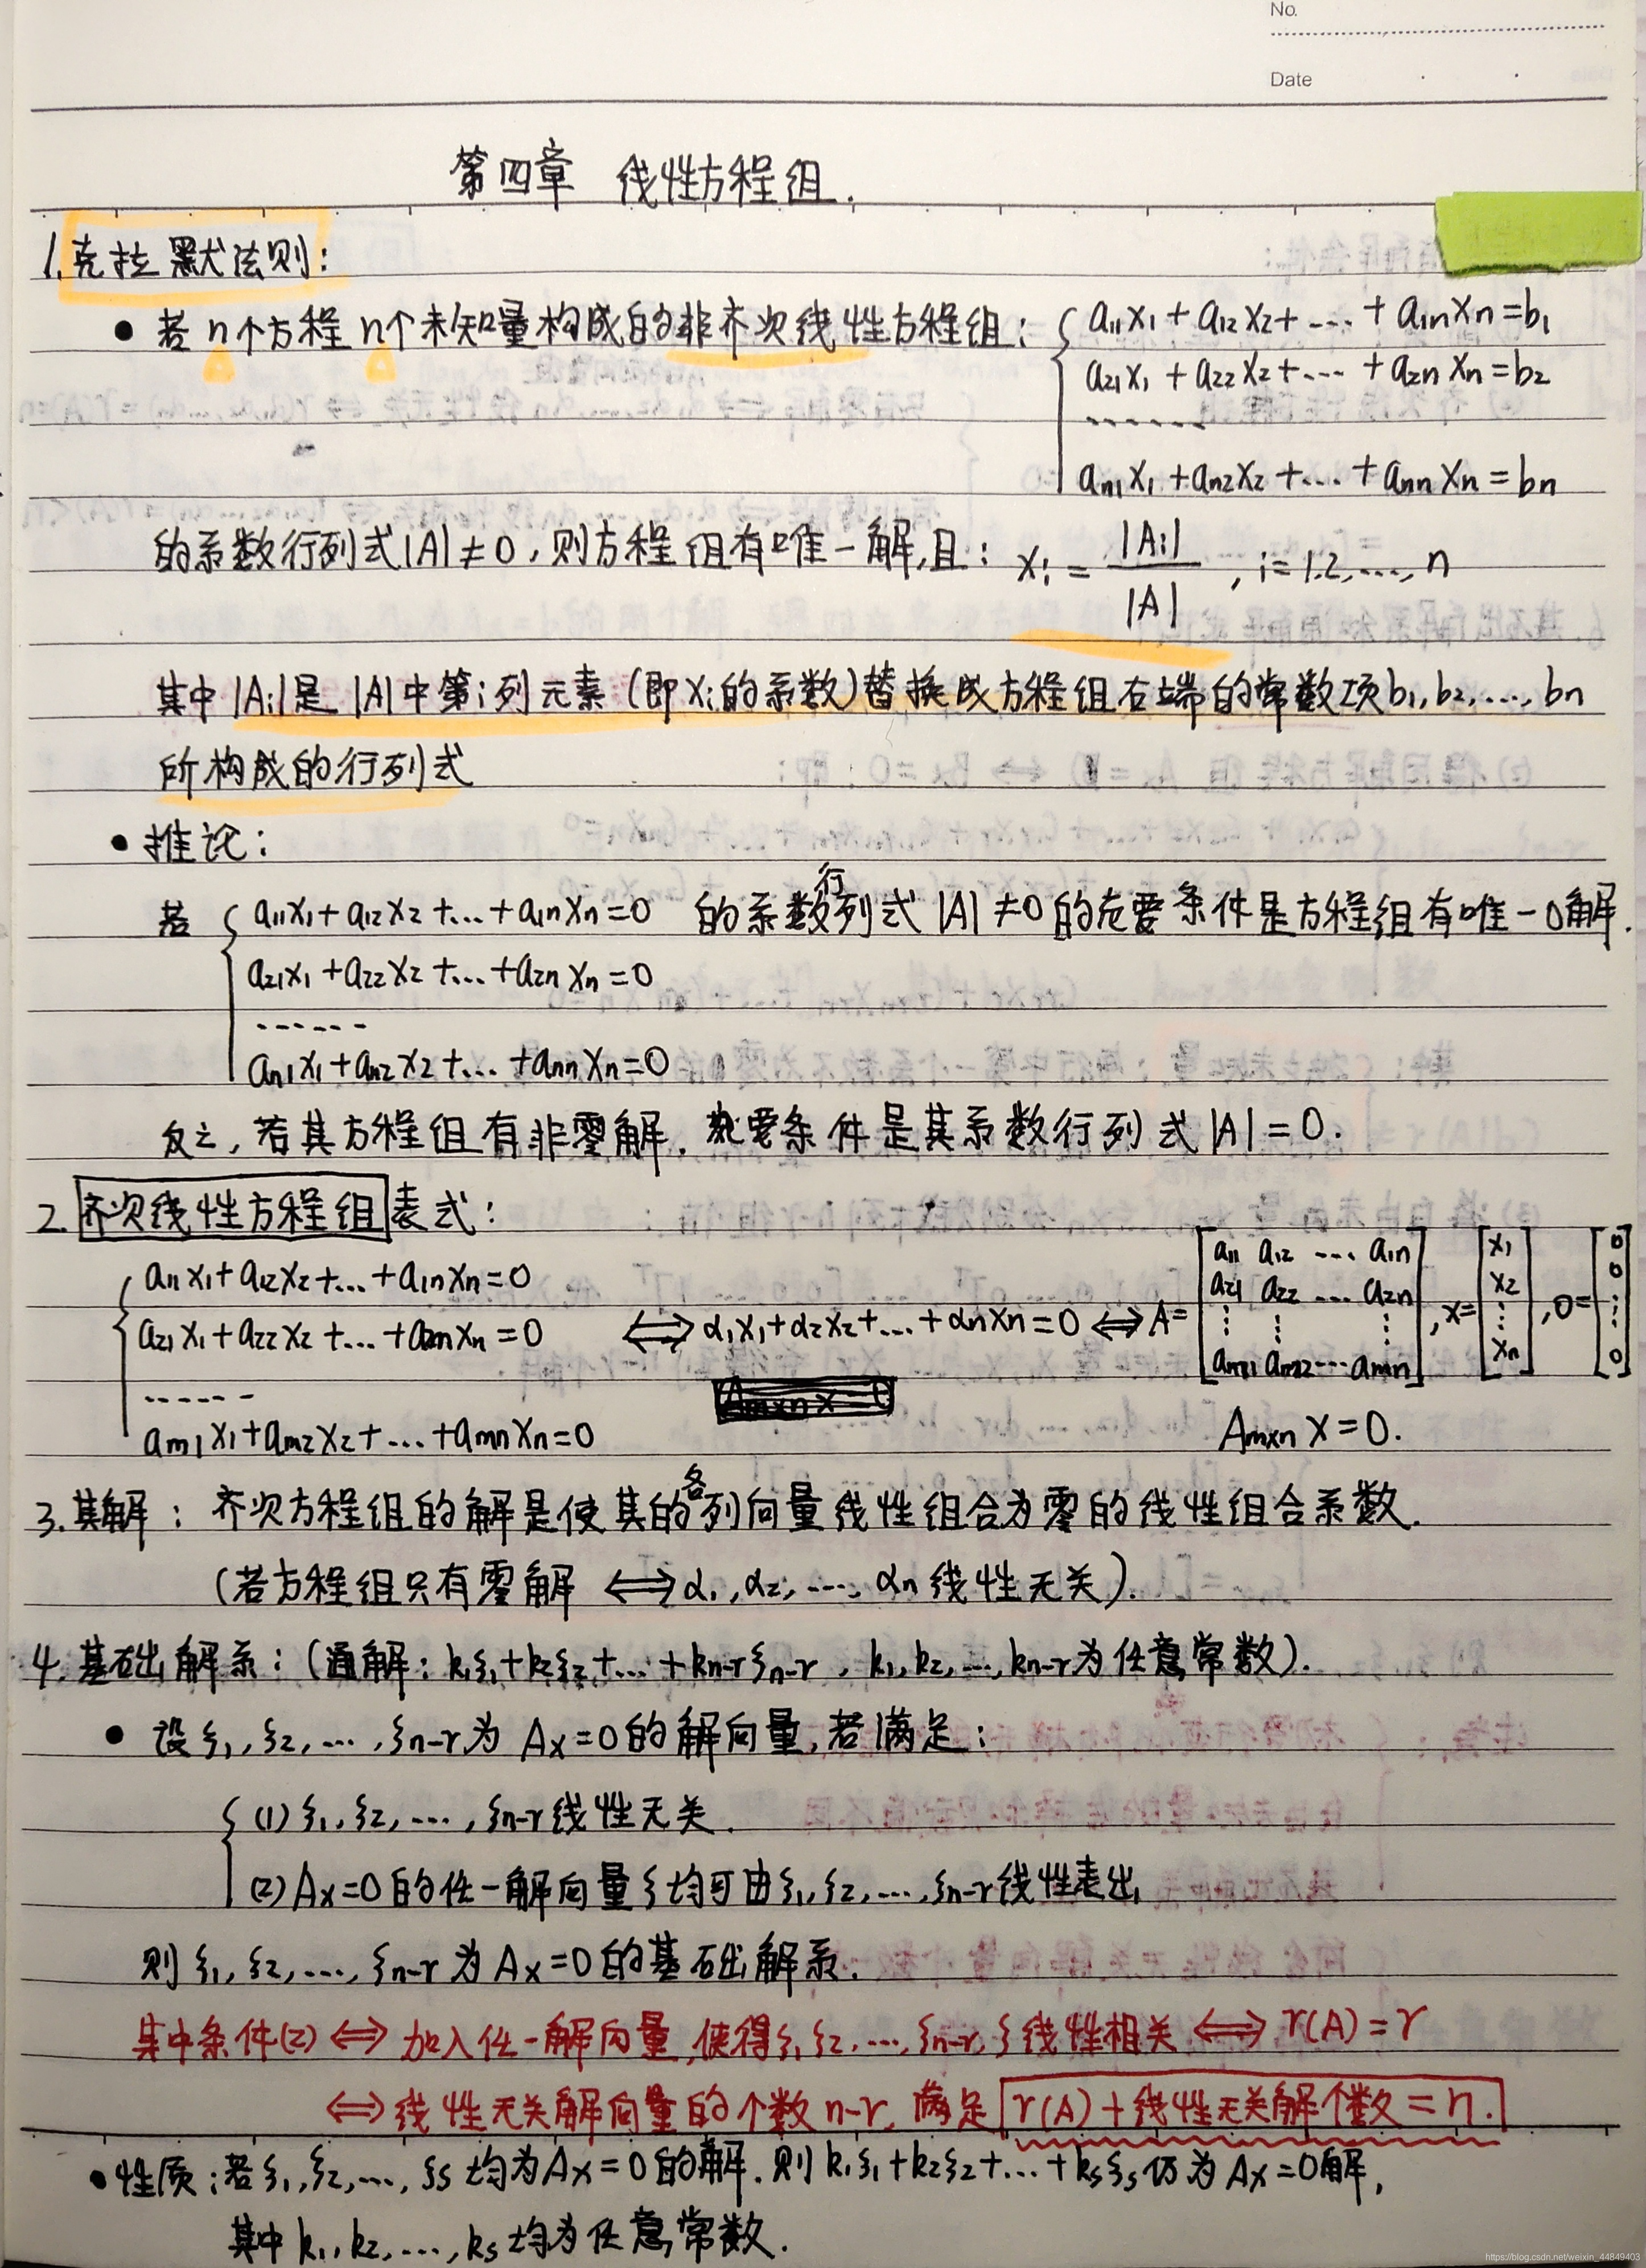 No.
Date
第四章 线性方程组.
1. 克拉默法则:
• 若n个方程n个未知量构成的非齐次线性方程组: { a₁₁x₁+a₁₂x₂+...+a₁ₙxₙ=b₁
a₂₁x₁+a₂₂x₂+...+a₂ₙxₙ=b₂
......
aₙ₁x₁+aₙ₂x₂+...+aₙₙxₙ=bₙ
的系数行列式|A|≠0,则方程组有唯一解,且: xᵢ = |Aᵢ| / |A| , i=1,2,...,n
其中|Aᵢ|是|A|中第i列元素(即xᵢ的系数)替换成方程组右端的常数项b₁,b₂,...,bₙ
所构成的行列式
• 推论:
若 { a₁₁x₁+a₁₂x₂+...+a₁ₙxₙ=0 的系数行列式|A|≠0的充要条件是方程组有唯一0解.
a₂₁x₁+a₂₂x₂+...+a₂ₙxₙ=0
......
aₙ₁x₁+aₙ₂x₂+...+aₙₙxₙ=0
反之,若其方程组有非零解,充要条件是其系数行列式|A|=0.
2. 齐次线性方程组表式:
{ a₁₁x₁+a₁₂x₂+...+a₁ₙxₙ=0
a₂₁x₁+a₂₂x₂+...+a₂ₙxₙ=0 ⟺ α₁x₁+α₂x₂+...+αₙxₙ=0 ⟺ A=[a₁₁ a₁₂ ... a₁ₙ
a₂₁ a₂₂ ... a₂ₙ
⋮ ⋮ ⋮
aₘ₁ aₘ₂ ... aₘₙ], x=[x₁ x₂ ⋮ xₙ], 0=[0 0 ⋮ 0]
......
aₘ₁x₁+aₘ₂x₂+...+aₘₙxₙ=0
Aₘₓₙx=0.
3. 其解: 齐次方程组的解是使其的各列向量线性组合为零的线性组合系数.
(若方程组只有零解 ⟺ α₁,α₂,...,αₙ线性无关).
4. 基础解系: (通解: k₁ξ₁+k₂ξ₂+...+kₙ₋ᵣξₙ₋ᵣ, k₁,k₂,...,kₙ₋ᵣ为任意常数).
• 设ξ₁,ξ₂,...,ξₙ₋ᵣ为Ax=0的解向量,若满足:
{ (1) ξ₁,ξ₂,...,ξₙ₋ᵣ线性无关.
(2) Ax=0的任一解向量ξ均可由ξ₁,ξ₂,...,ξₙ₋ᵣ线性表出
则ξ₁,ξ₂,...,ξₙ₋ᵣ为Ax=0的基础解系.
其中条件(2) ⟺ 加入任一解向量,使得ξ₁,ξ₂,...,ξₙ₋ᵣ,ξ线性相关 ⟺ r(A)=r
⟺ 线性无关解向量的个数n-r, 满足 r(A)+线性无关解个数=n.
• 性质:若ξ₁,ξ₂,...,ξₛ均为Ax=0的解.则k₁ξ₁+k₂ξ₂+...+kₛξₛ仍为Ax=0解,
其中k₁,k₂,...,kₛ均为任意常数.
https://blog.csdn.net/weixin_44849403